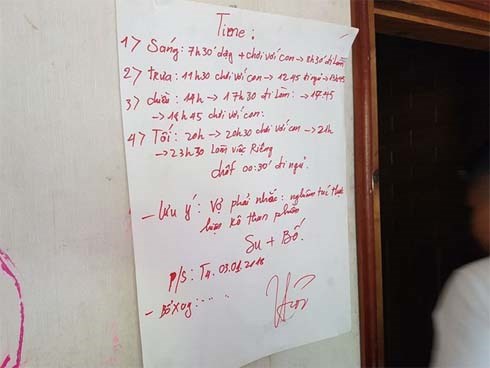 Time:
1) Sáng: 7h30' dậy + chơi với con → 8h30 đi làm
2) trưa: 11h30 chơi với con → 12h45 đi ngủ → 13h45
3) chiều: 14h → 17h30 đi làm: → 17h45
→ 18h45 chơi với con:
4) Tối: 20h → 20h30 chơi với con → 21h
→ 23h30 làm việc Riêng
chốt 00:30' đi ngủ.
- Lưu ý: Vợ phải nhắc: nghiêm túc thực
hiện k0 than phiền
Su + Bố.
P/s: T4. 03.01.2018
- Bổ xung: .. .. ..